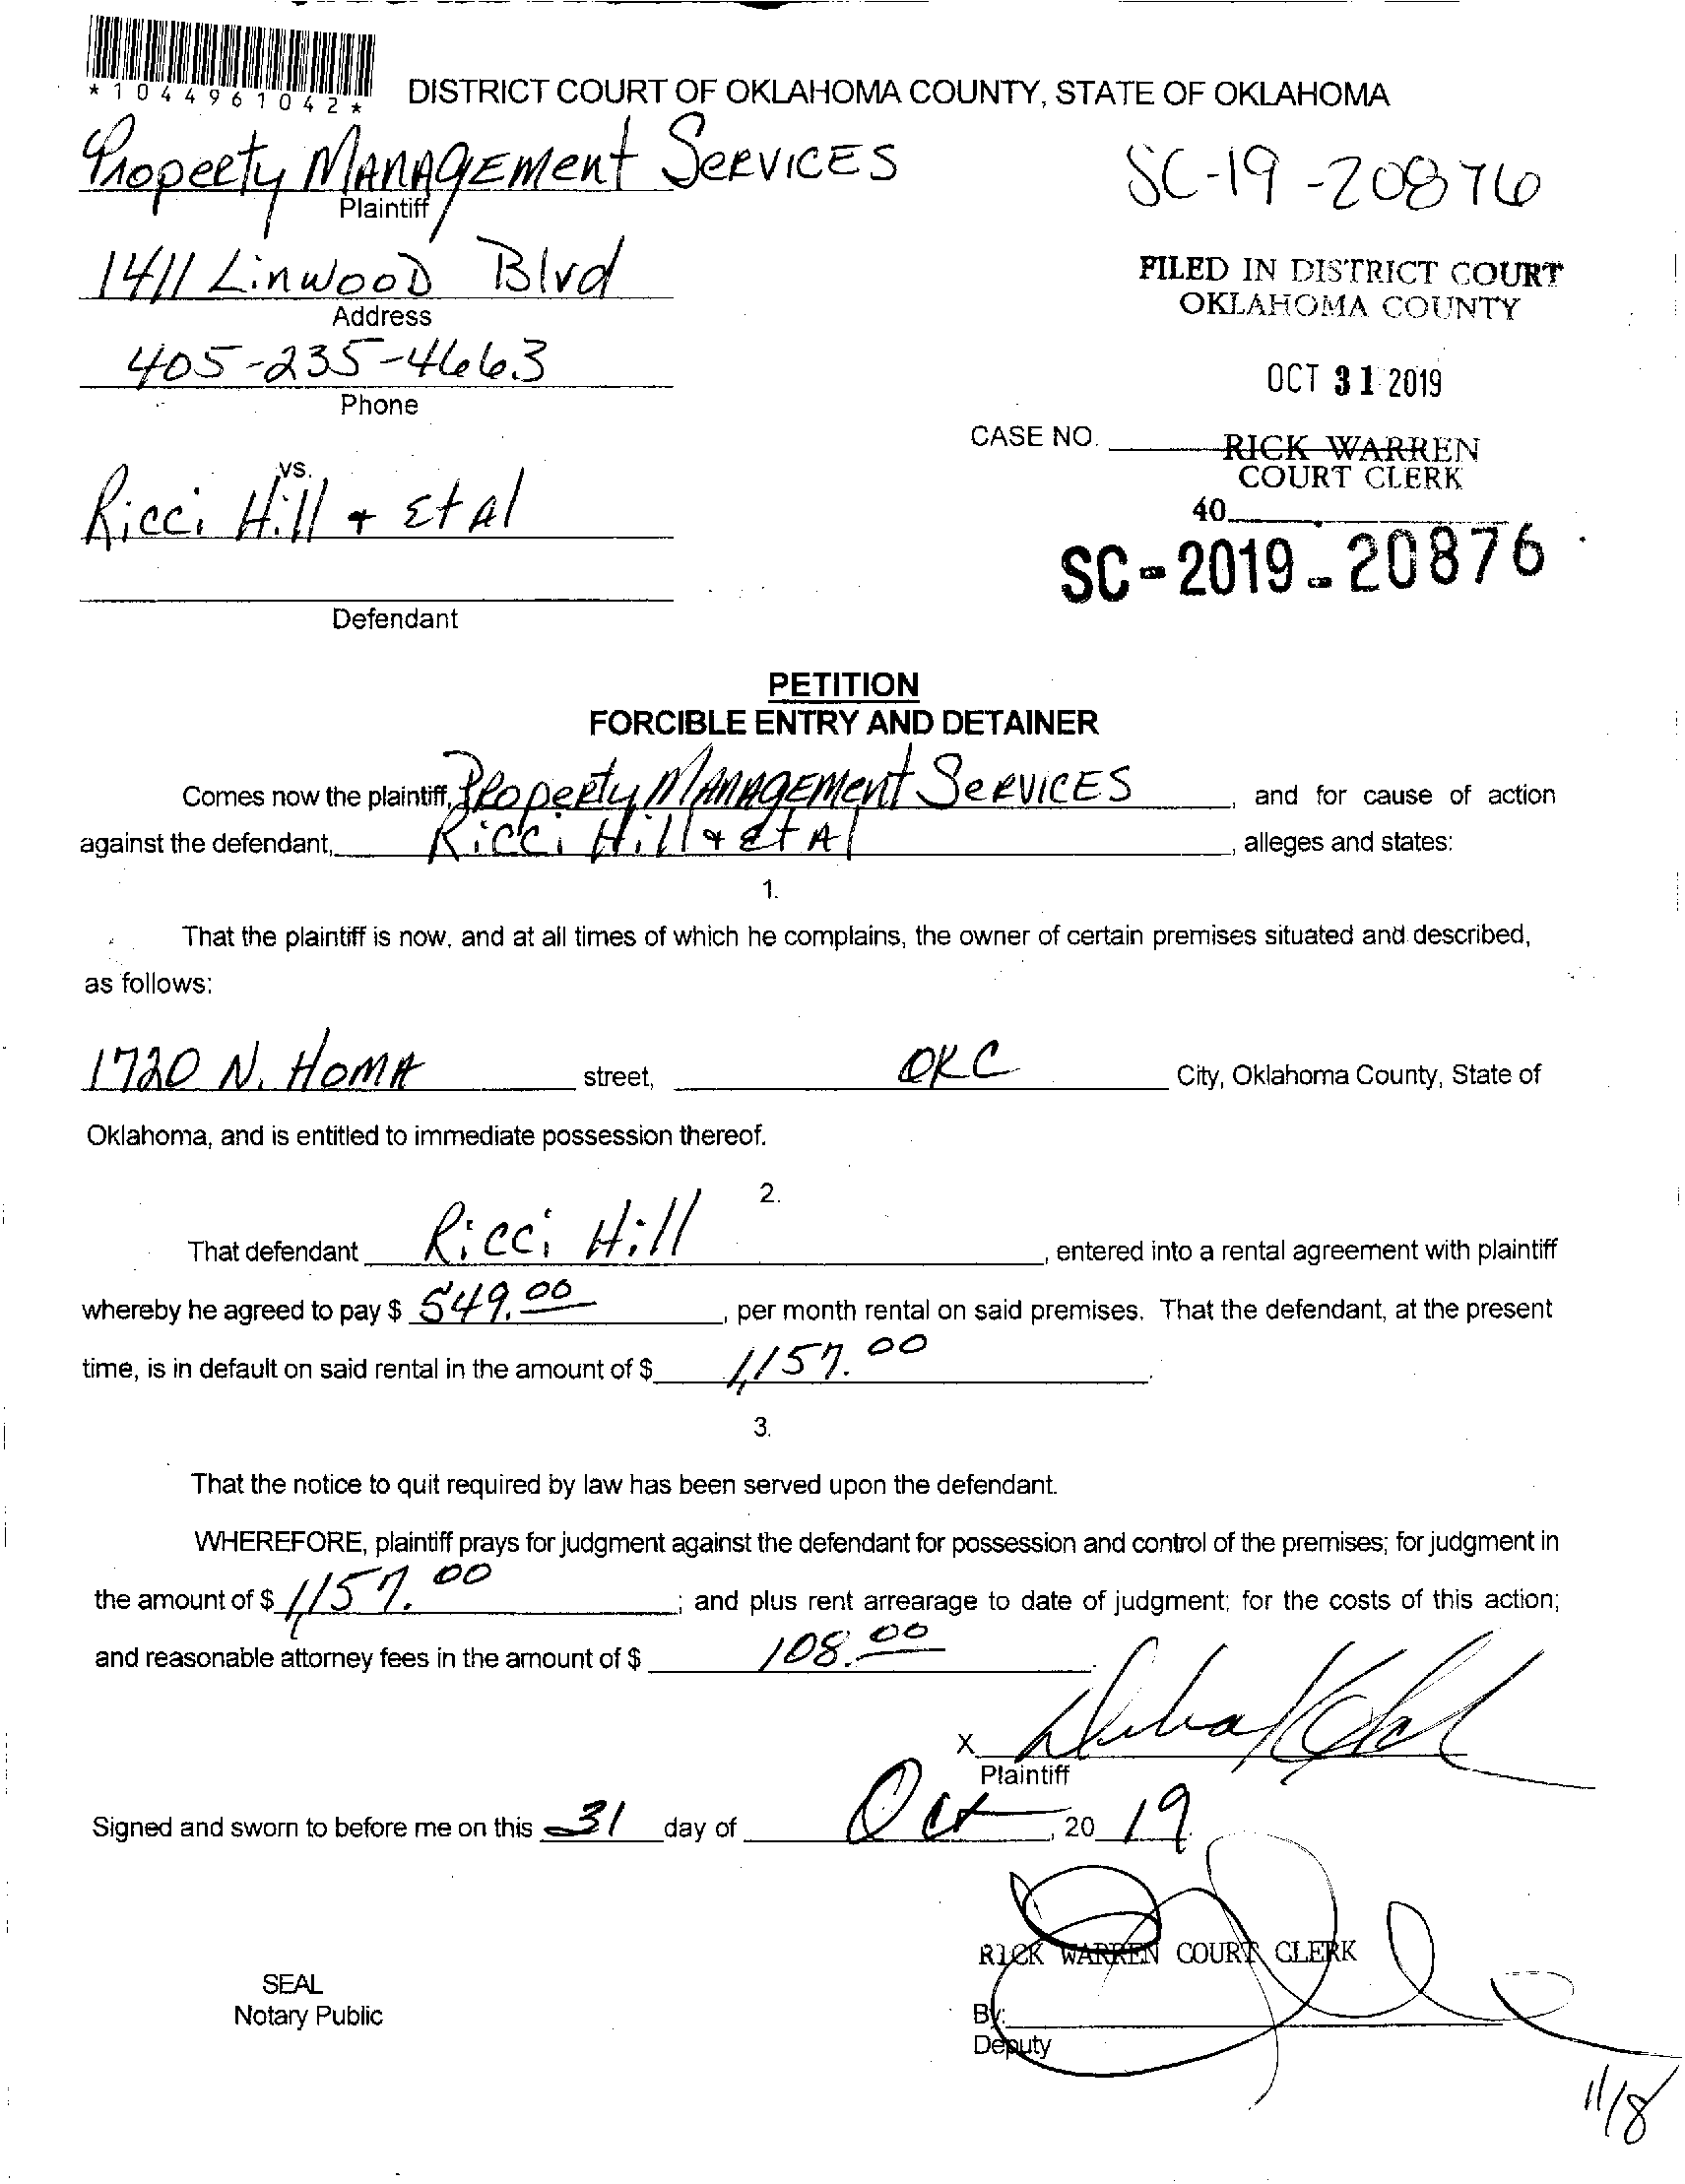 *1044961042*
DISTRICT COURT OF OKLAHOMA COUNTY, STATE OF OKLAHOMA
Property Management Services
SC-19-20876
Plaintiff
1411 Linwood Blvd
FILED IN DISTRICT COURT
OKLAHOMA COUNTY
Address
405-235-4663
OCT 31 2019
Phone
CASE NO.
RICK WARREN
COURT CLERK
vs.
Ricci Hill + Et Al
40
SC-2019-20876
Defendant
PETITION
FORCIBLE ENTRY AND DETAINER
Comes now the plaintiff, Property Management Services, and for cause of action
against the defendant, Ricci Hill + Et Al, alleges and states:
1.
That the plaintiff is now, and at all times of which he complains, the owner of certain premises situated and described,
as follows:
1720 N. Homa street, OKC City, Oklahoma County, State of
Oklahoma, and is entitled to immediate possession thereof.
2.
That defendant Ricci Hill, entered into a rental agreement with plaintiff
whereby he agreed to pay $ 549.00, per month rental on said premises. That the defendant, at the present
time, is in default on said rental in the amount of $ 1,157.00.
3.
That the notice to quit required by law has been served upon the defendant.
WHEREFORE, plaintiff prays for judgment against the defendant for possession and control of the premises; for judgment in
the amount of $ 1,157.00; and plus rent arrearage to date of judgment; for the costs of this action;
and reasonable attorney fees in the amount of $ 108.00
X
Plaintiff
Signed and sworn to before me on this 31 day of Oct, 20 19.
RICK WARREN COURT CLERK
SEAL
Notary Public
By:
Deputy
11/18